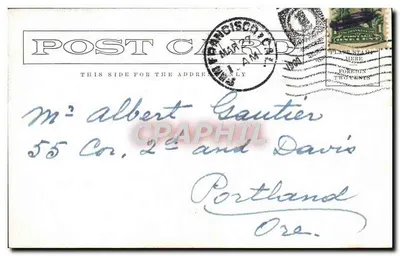 POST CARD
THIS SIDE FOR THE ADDRESS ONLY
SAN FRANCISCO, CAL.
MAR 27
1 AM
HERE
FOREIGN
TWO CENTS
Mr Albert Gautier
55 Cor. 2d and Davis
Portland
Ore.
CPARAMA